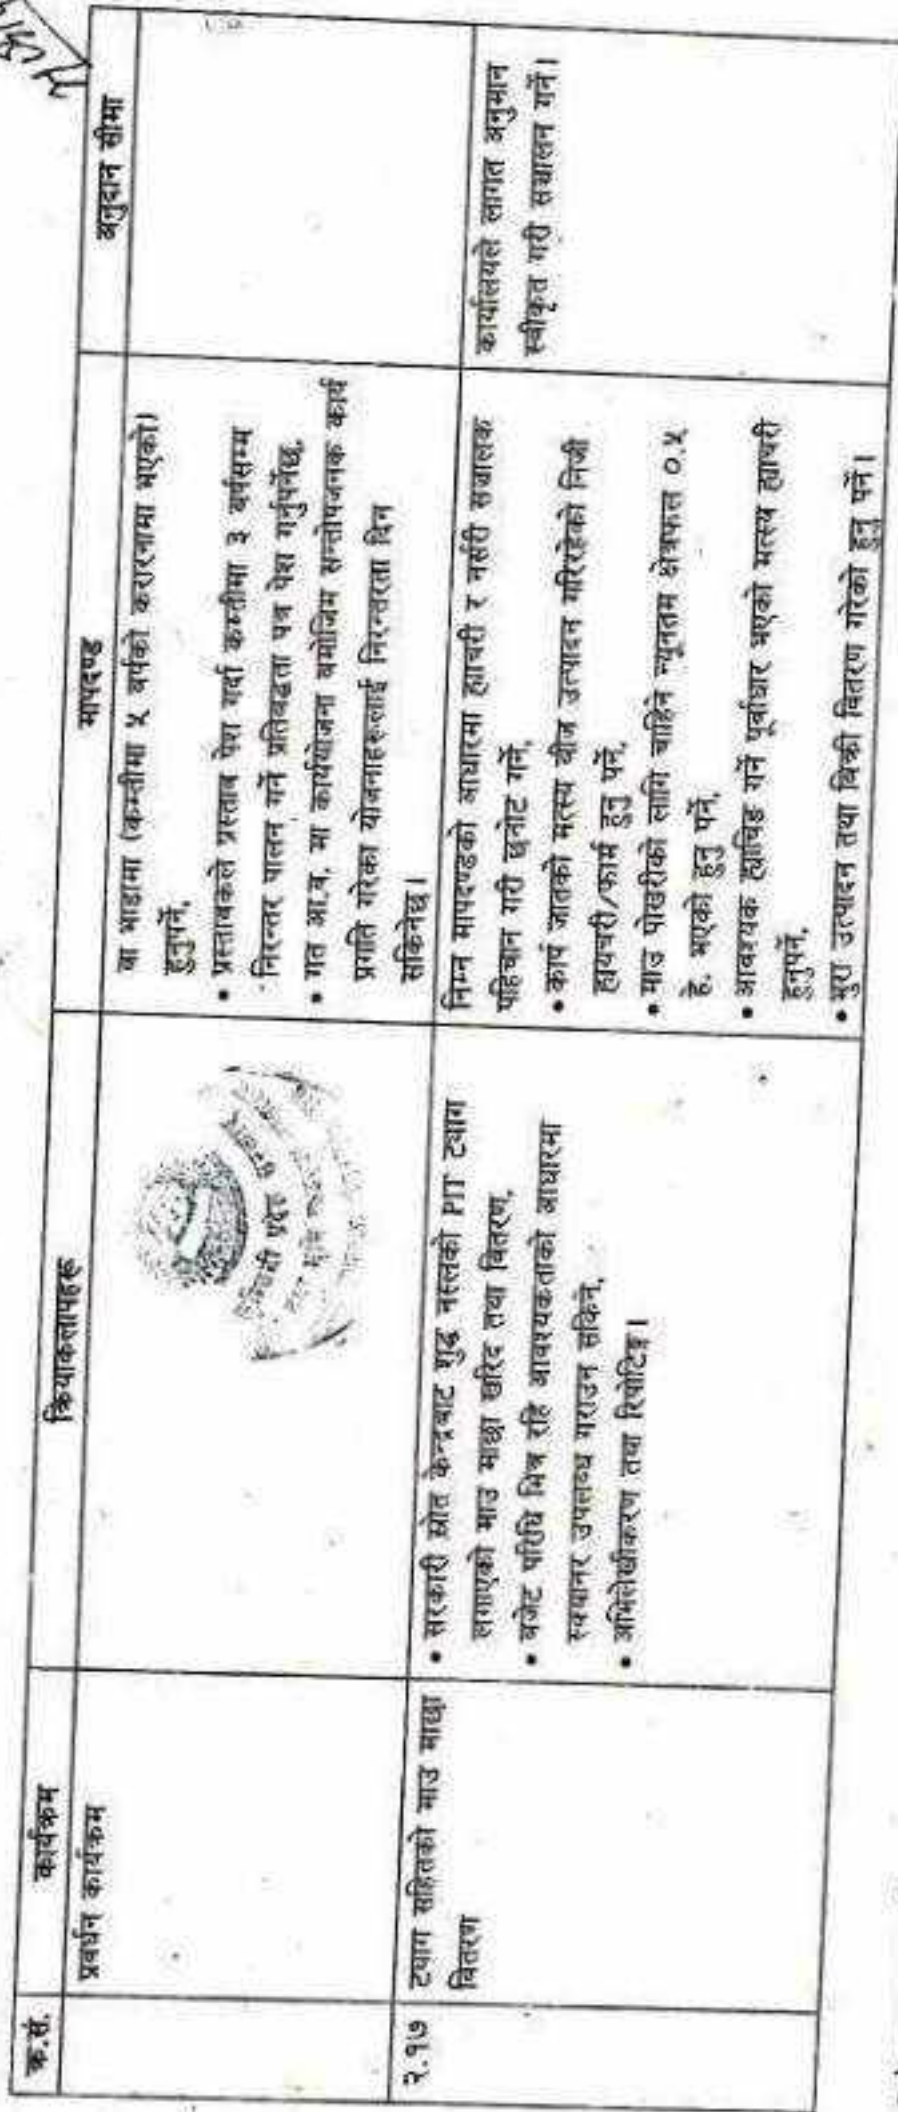 क्र.सं.
कार्यक्रम
क्रियाकलापहरु
मापदण्ड
अनुदान सीमा
प्रबर्धन कार्यक्रम
वा भाडामा (कम्तीमा ५ बर्षको करारनामा भएको)
हुनुपर्ने,
• प्रस्तावकले प्रस्ताव पेश गर्दा कम्तीमा ३ बर्षसम्म
निरन्तर पालन गर्ने प्रतिबद्धता पत्र पेश गर्नुपर्नेछ,
• गत आ.ब. मा कार्ययोजना बमोजिम सन्तोषजनक कार्य
प्रगति गरेका योजनाहरुलाई निरन्तरता दिन
सकिनेछ।
२.१७
ट्याग सहितको माउ माछा
बितरण
• सरकारी स्रोत केन्द्रबाट शुद्ध नश्लको PIT ट्याग
लगाएको माउ माछा खरिद तथा बितरण,
• बजेट परिधि भित्र रहि आवश्यकताको आधारमा
स्क्यानर उपलब्ध गराउन सकिने,
• अभिलेखीकरण तथा रिपोर्टिङ।
निम्न मापदण्डको आधारमा ह्याचरी र नर्सरी सञ्चालक
पहिचान गरी छनोट गर्ने,
• कार्प जातको मत्स्य बीज उत्पादन गरिरहेको निजी
ह्याचरी/फार्म हुनु पर्ने,
• माउ पोखरीको लागि चाहिने न्यूनतम क्षेत्रफल ०.५
हे. भएको हुनु पर्ने,
• आवश्यक ह्याचिङ गर्ने पुर्वाधार भएको मत्स्य ह्याचरी
हुनुपर्ने,
• भुरा उत्पादन तथा बिक्री बितरण गरेको हुनु पर्ने।
कार्यालयले लागत अनुमान
स्वीकृत गरी सञ्चालन गर्ने।